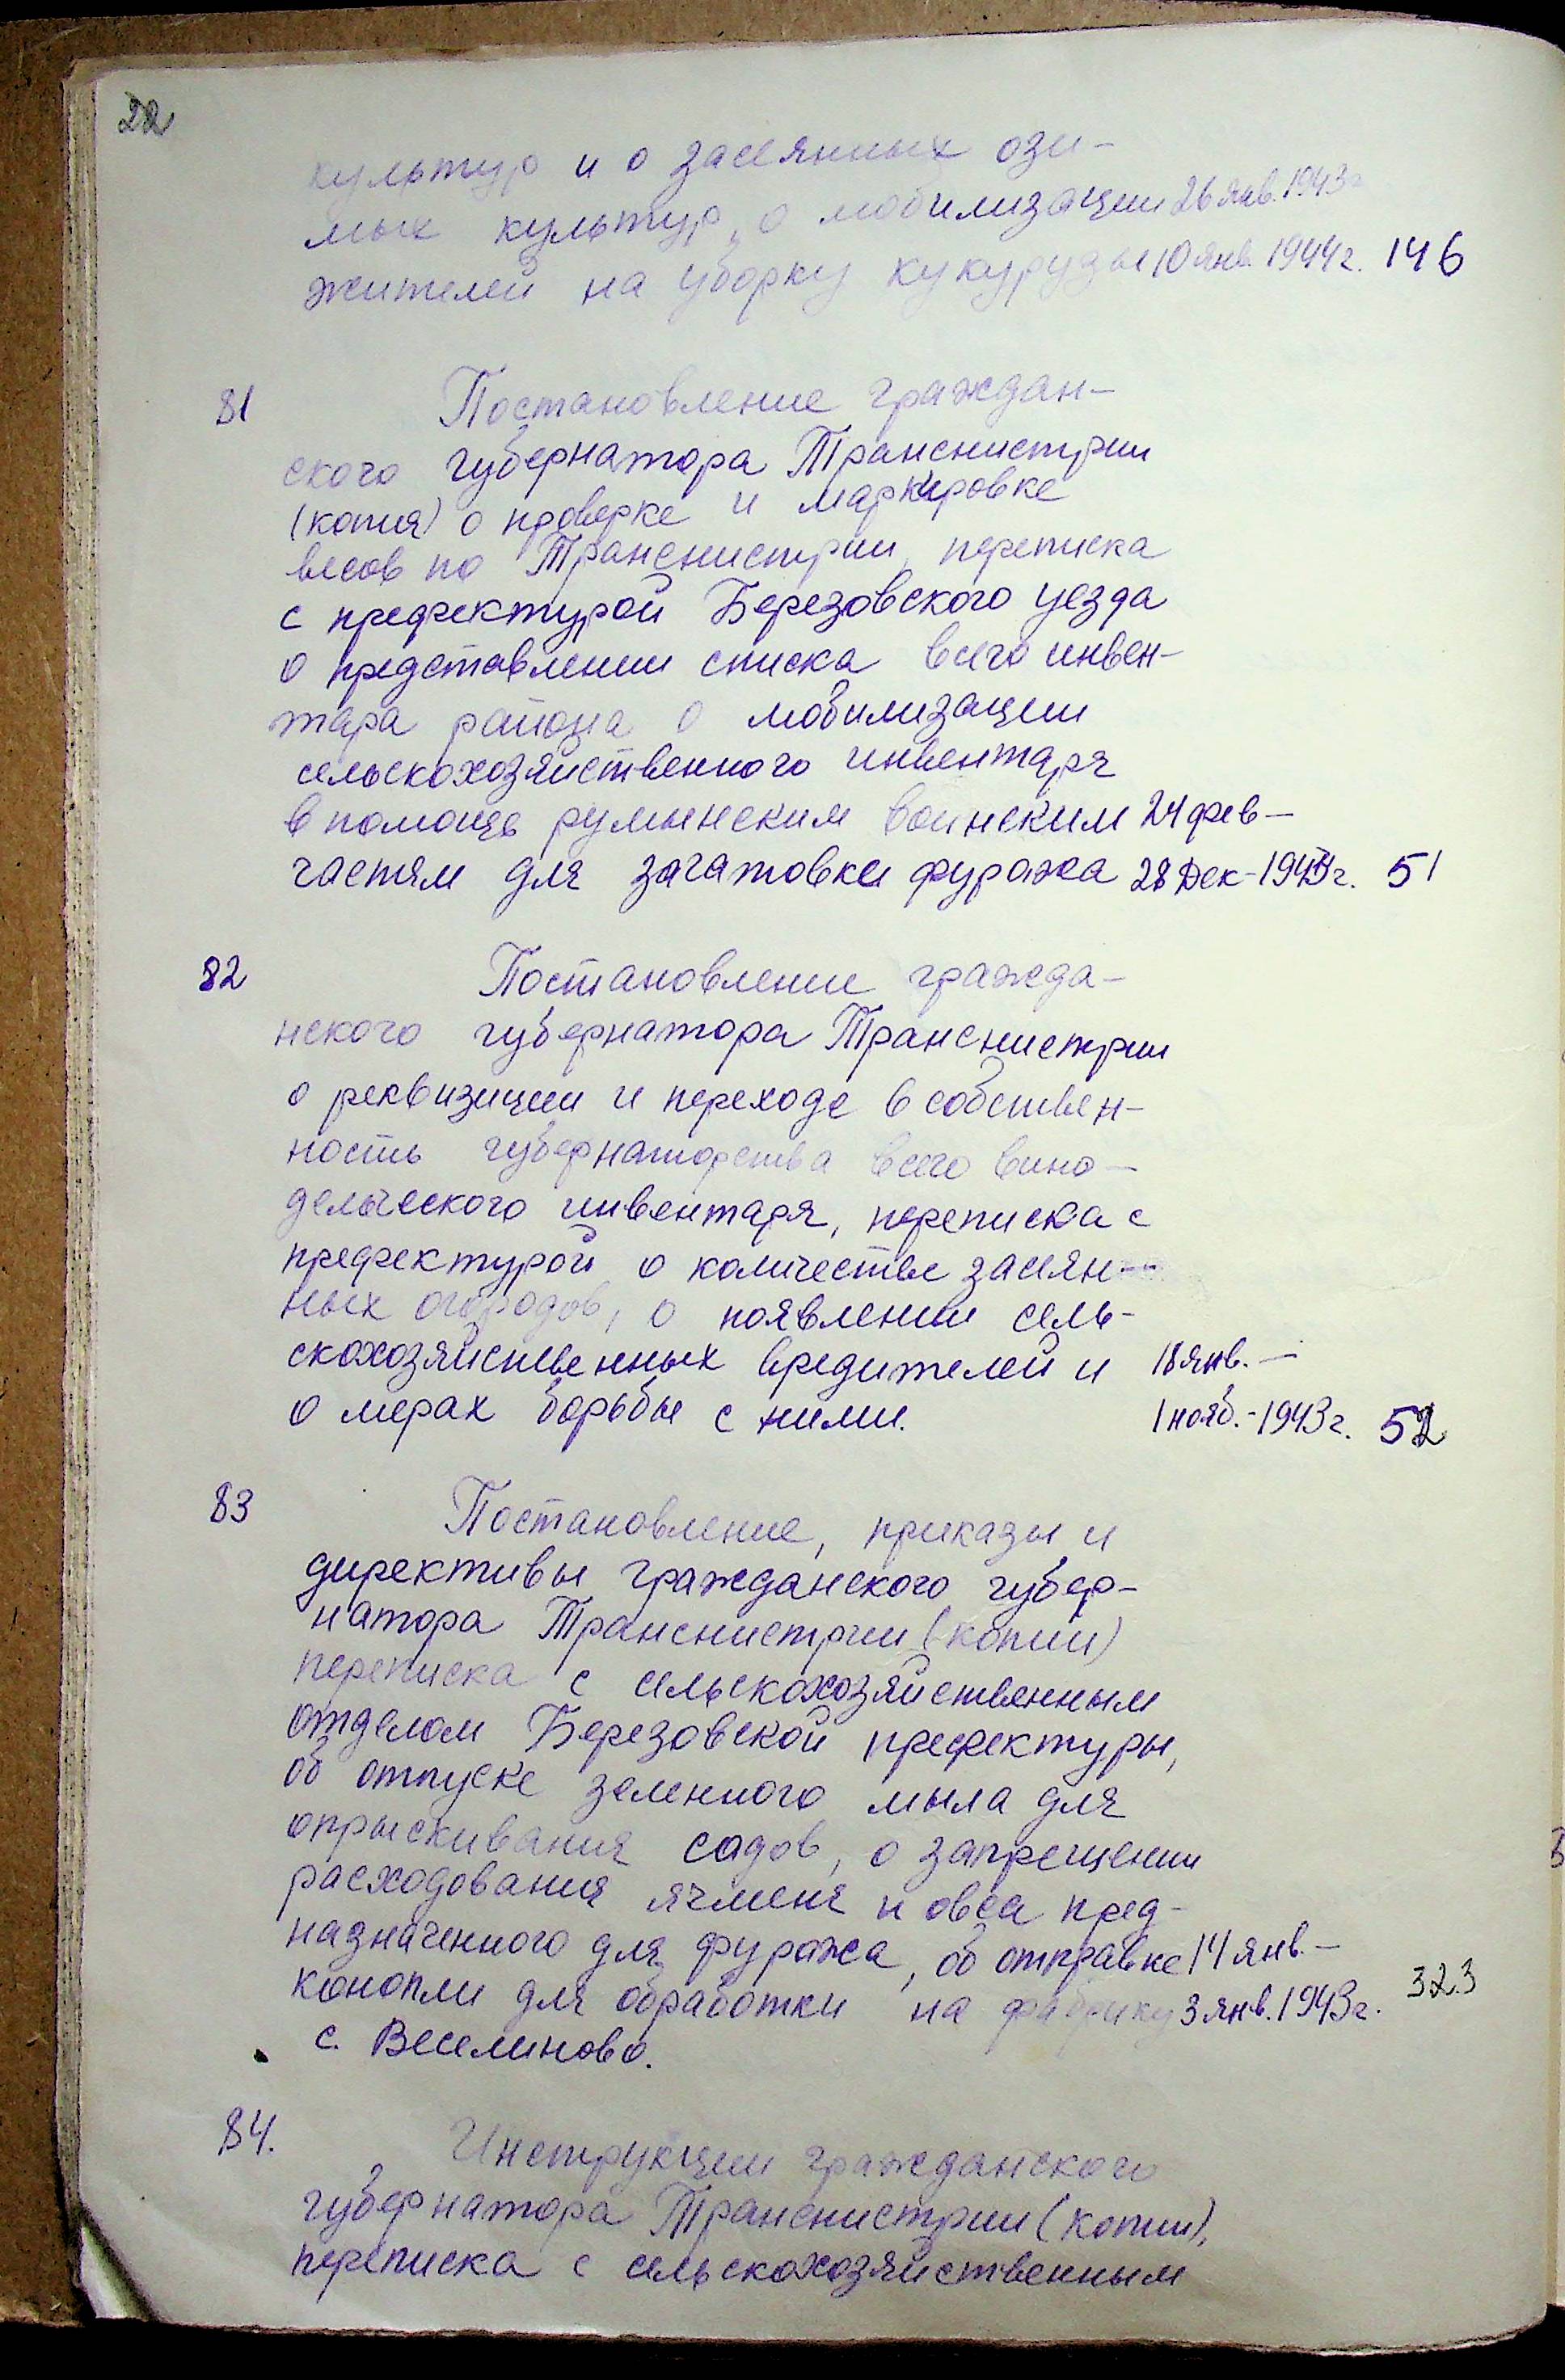 22
культур и о засеянных ози-
мых культур, о мобилизации 26 янв. 1943г
жителей на уборку кукурузы 10 янв. 1944г. 146
81 Постановление граждан-
ского губернатора Транснистрии
(копия) о проверке и маркировке
весов по Транснистрии, переписка
с префектурой Березовского уезда
о представлении списка всего инвен-
таря района о мобилизации
сельскохозяйственного инвентаря
в помощь румынским воинским 24 фев-
частям для загатовки фуража 28 Дек-1943г. 51
82 Постановление гражда-
нского губернатора Транснистрии
о реквизиции и переходе в собствен-
ность губернаторства всего вино-
дельческого инвентаря, переписка с
префектурой о количестве засеян-
ных огородов, о появлении сель-
скохозяйственных вредителей и 18 янв. -
о мерах борьбы с ними. 1 нояб.-1943г. 52
83 Постановление, приказы и
директивы гражданского губер-
натора Транснистрии (копии)
переписка с сельскохозяйственным
отделом Березовской префектуры,
об отпуске зеленного мыла для
опрыскивания садов, о запрещении
расходования ячменя и овса пред-
назначенного для фуража, об отправке 14 янв. -
конопли для обработки на фабрику 3 янв. 1943г. 323
с. Веселиново.
84. Инструкции гражданского
губернатора Транснистрии (копии),
переписка с сельскохозяйственным